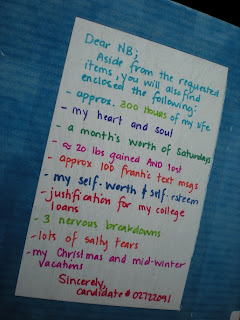 Dear NB;
Aside from the requested
items, you will also find
enclosed the following:
- approx. 300 Hours of my life
- my heart and soul
- a month's worth of Saturdays
- ≈ 20 lbs gained AND lost
- approx 100 frantic text msgs
- my self-worth & self-esteem
- justification for my college
loans
- 3 nervous breakdowns
- lots of salty tears
- my Christmas and mid-winter
vacations
Sincerely,
candidate # 02722091